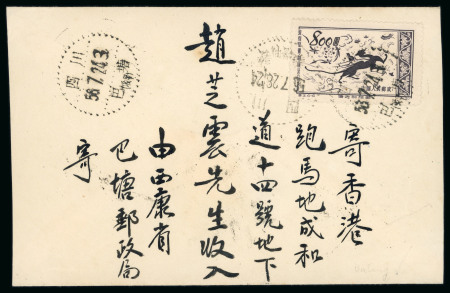 寄香港
跑馬地成和
道十四號地下
趙芝雲先生收入
由西康省
巴塘郵政局
寄
800
四川
56.7.24.3